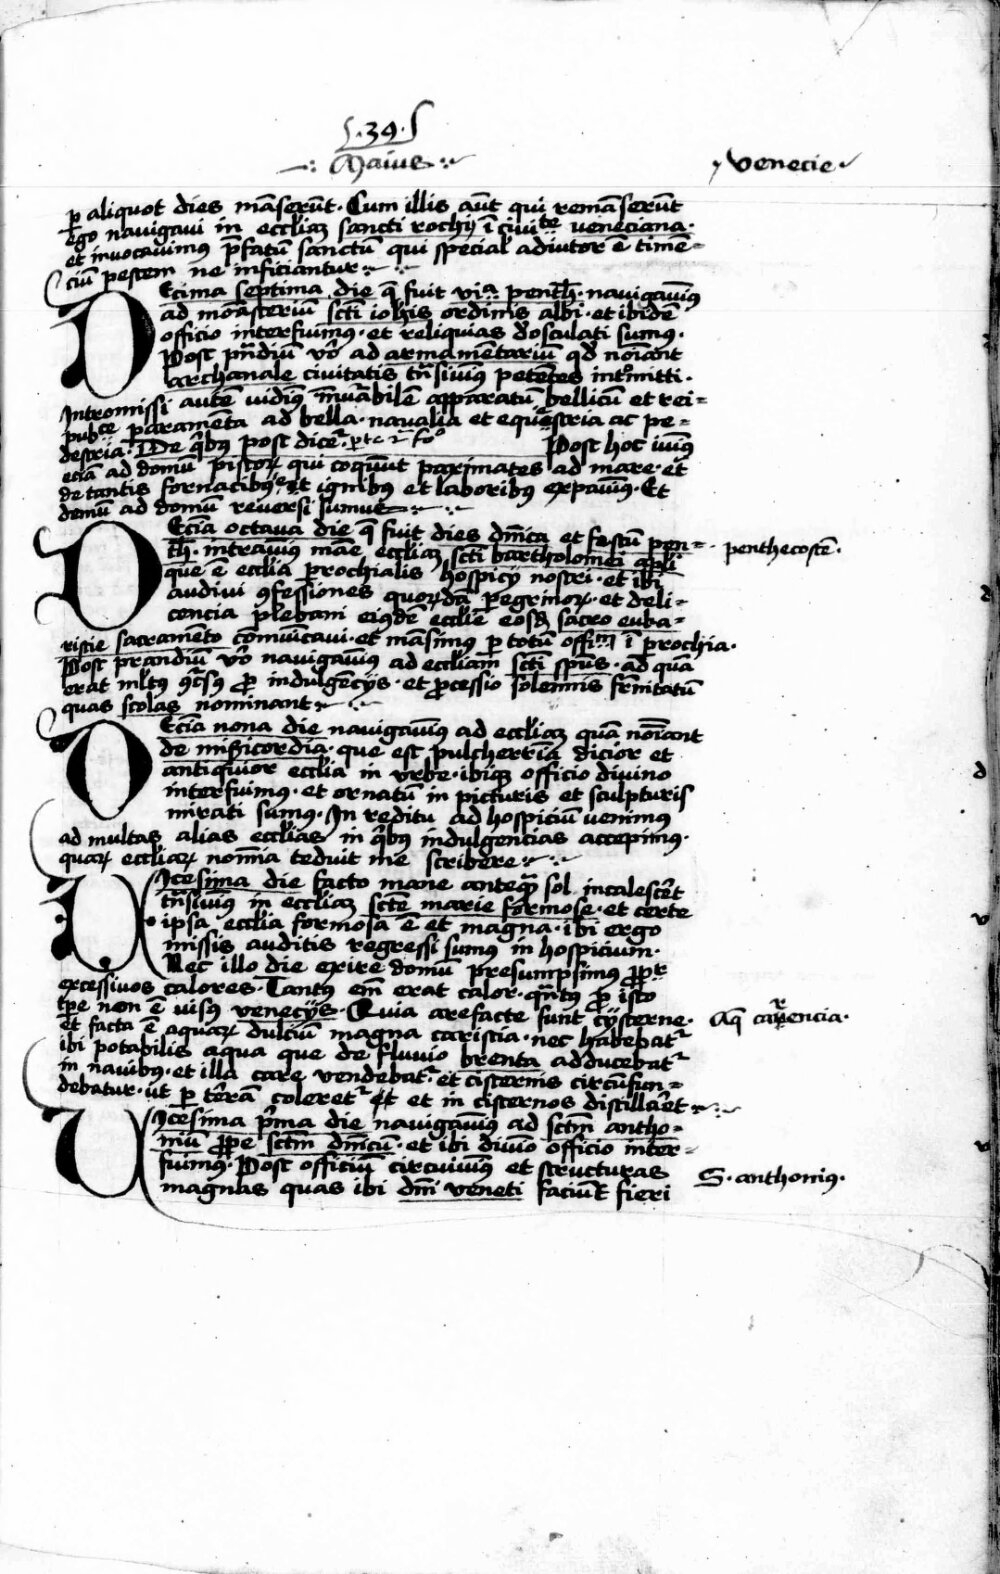 .39.
Maius
Venecie.
p aliquot dies māserūt. Cum illis aūt qui remāserūt
ego navigavi in eccliaȝ sancti rochij ī civitͭᵉ veneciana.
et invocavimus pfatū sanctū qui special adiutor ē timē=
ciū pestem ne inficiantur
Decima septima die q̄ fuit viᵃ penth. navigavīꝰ
ad monasteriū scti iohis ordinis albi. et ibidē
officio interfuimꝰ. et reliquias dosculati sumꝰ.
Post pndiū vo ad armamentariū qd noīant
archanale civitatis tnsivimꝰ petētes intromitti.
Intromissi autē vidimꝰ inuabilē apparatū bellicū et rei=
pubce paramēta ad bella. navalia et equestria ac pe=
destria. De qbꝰ post dicet. Post hoc ivimꝰ
eciā ad domū pistorꝝ qui coquūt paximates ad mare. et
de tantis fornacibꝰ et ignibꝰ et laboribꝰ expavimꝰ. Et
demū ad domū reversi sumus
Decīa octava die q̄ fuit dies dnica et festū pen=
th. intravimꝰ māe eccliaȝ scti bartholomei apli
que ē ecclia prochialis hospicij nostri. et ibi
audivi ꝯfessiones quorūdā pegrinorꝝ. et de li=
cencia plebani eiꝰdē ecclie eosd sacro euka=
ristie sacramēto comūicavi. et māsimꝰ p totū offm ī prochia.
Post prandiū vo navigavimꝰ ad eccliam scti spūs. ad quā
erat mltꝰ ꝯcsꝰ pro indulgēcijs. et pcessio solemnis frnitatū
quas scolas nominant
Decīa nona die navigavimꝰ ad eccliaȝ quā noīant
de misicordia. que est pulcherria dicior et
antiquior ecclia in urbe. ibiqȝ officio divino
interfuimꝰ. et ornatū in picturis et sculpturis
mirati sumꝰ. In reditu ad hospiciū venimꝰ
ad multas alias ecclias in qbꝰ indulgencias accepimꝰ.
quarꝝ eccliarꝝ nomīa teduit me scribere
Vicesima die facto mane anteqȝ sol incalescet
tnsivimꝰ in eccliaȝ scte marie formose. et certe
ipsa ecclia formosa ē et magna. ibi ergo
missis auditis regressi sumꝰ in hospicium.
Nec illo die exire domū presumpsimꝰ ppt
excessivos calores. Tantꝰ em erat calor. qntꝰ pro isto
tpe non ē visꝰ venecijs. Quia arefacte sunt cysterne.
et facta ē aquarꝝ dulciū magna caristia. nec habebatᷣ
ibi potabilis aqua que de fluvio brenta adducebatᷣ
in navibꝰ. et illa care vendebatᷣ. et cisternis circūfun=
debatur. ut p terrā coleretᷣ et in cisternos distillaret
Vicesima pma die navigavimꝰ ad sctm antho=
niū ppe sctm dnicū. et ibi divio officio inter=
fuimꝰ. Post officiū circuivimꝰ et structuras
magnas quas ibi dni veneti faciūt fieri
penthecostē.
Aq carencia.
S. anthoniꝰ.